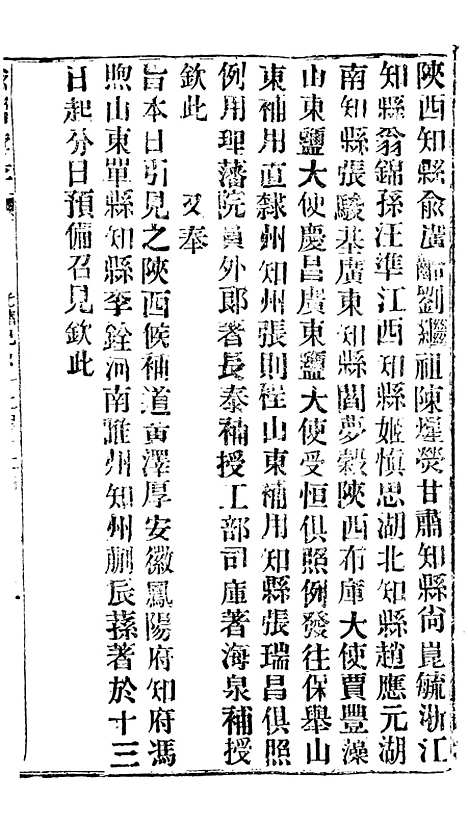 陝西知縣俞廣劉繼祖陳墀熒甘肅知縣尙崑毓浙江
知縣翁錦孫汪準江西知縣姬愼思湖北知縣趙應元湖
南知縣張駿基廣東知縣閻夢穀陝西布庫大使賈豐藻
山東鹽大使慶昌廣東鹽大使受恒俱照例發往保舉山
東補用直隸州知州張則程山東補用知縣張瑞昌俱照
例用理藩院員外郎著長泰補授工部司庫著海泉補授
欽此　又奉
旨本日引見之陝西候補道黃澤厚安徽鳳陽府知府馮
煦山東單縣知縣李銓河南淮州知州蒯辰蓀著於十三
日起分日預備召見欽此